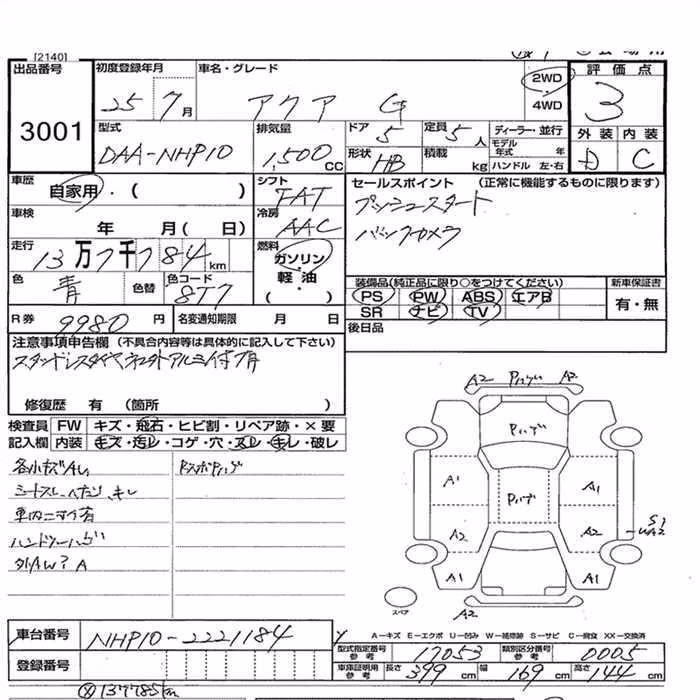 [2140]
出品番号 3001
初度登録年月 25 7月
車名・グレード アクア G
2WD・4WD
評価点 3
外装 D 内装 C
型式 DAA-NHP10
排気量 1,500CC
ドア 5 定員 5人
形状 HB 積載 kg
ディーラー・並行
モデル年式 年
ハンドル 左・右
車歴 自家用・( )
シフト FAT
セールスポイント (正常に機能するものに限ります)
プッシュスタート
バックカメラ
車検 年 月( 日)
冷房 AAC
走行 13万7千784km
燃料 ガソリン・軽油・( )
色 青 色替 色コード 8T7
装備品(純正品に限り○をつけてください)
PS PW ABS エアB
SR ナビ TV
新車保証書 有・無
R券 9980円
名変通知期限 月 日
後日品
注意事項申告欄 (不具合内容等は具体的に記入して下さい)
修復歴 有 (箇所 )
検査員記入欄
FW キズ・飛石・ヒビ割・リペア跡・×要
内装 キズ・汚レ・コゲ・穴・スレ・キレ・破レ
各小キズAL
シートスレ、ヘたり、キレ
ハンドルハゲ
外AW?A
A2 Pハゲ A2
Pハゲ
A1 Pハゲ A1
A2 A2
A1 A1
スペア A2
車台番号 NHP10-2221184
A-キズ E-エクボ U-凹み W-補修跡 S-サビ C-腐食 XX-交換済
登録番号
型式指定番号参考 17053 類別区分番号参考 0005
車庫証明用参考 長さ 399cm 幅 169cm 高さ 144cm
137785km